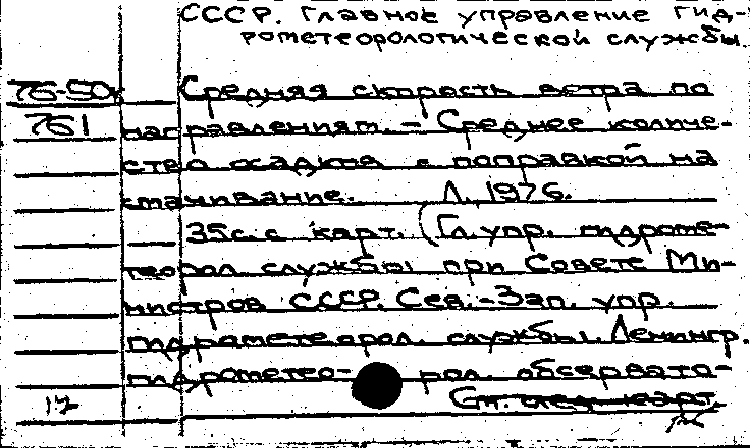 СССР. Главное управление гид-
рометеорологической службы.
76-50к Средняя скорость ветра по
761 направлениям. – Среднее количе-
ство осадков с поправкой на
смачивание. Л. 1976.
35с. с карт. (Гл. упр. гидроме-
теорол службы при Совете Ми-
нистров СССР. Сев.-Зап. упр.
гидрометеорол. службы. Ленингр.
гидрометео- рол. обсервато-
12 См. след. карт.